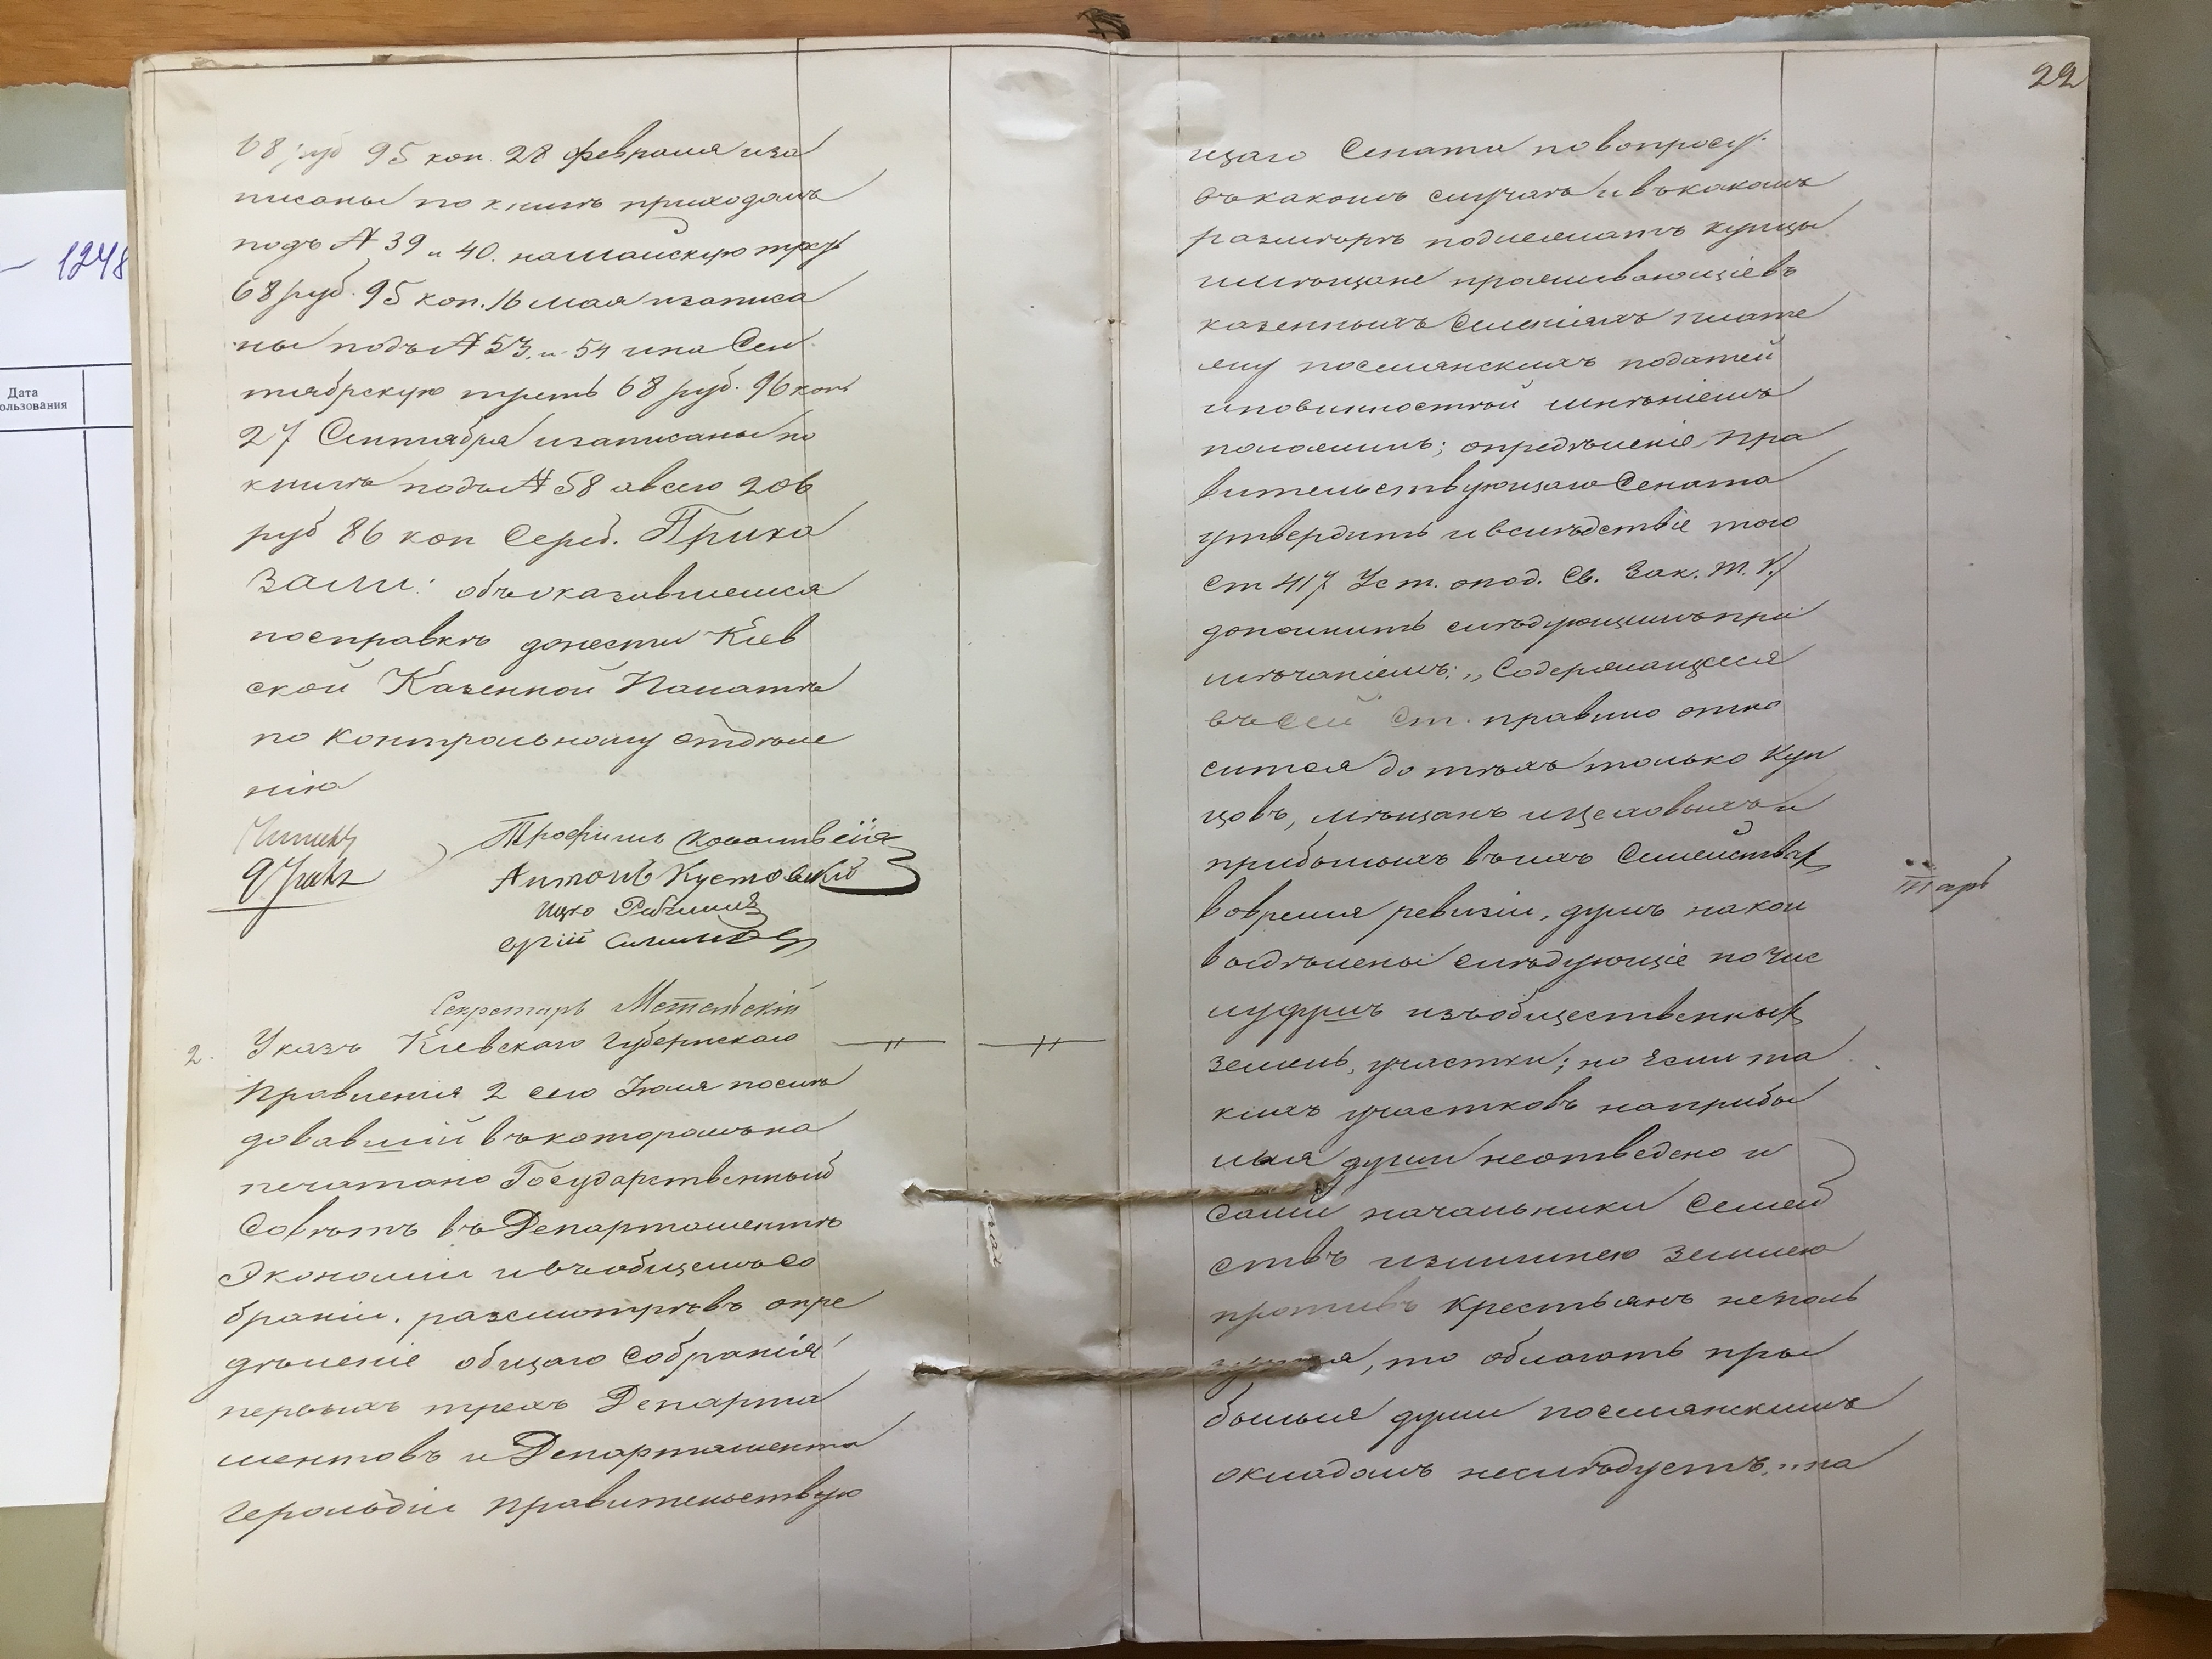 68 руб 95 коп. 28 февраля и за
писаны по книгѣ приходомъ
подъ № 39 и 40. на Маійскую треть
68 руб. 95 коп. 16 мая и записа
ны подъ № 53. и 54 и на Сен
тябрскую треть 68 руб. 96 коп
27 Сентября и записаны по
книгѣ подъ № 58 а всего 206
руб 86 коп Сереб. Прика
зали: объ оказавшемся
по справкѣ донести Кіев
ской Казенной Палатѣ
по контрольному отдѣле
нію
Трофимъ
Антонъ Кустовскій
Ицко
Секретарь Метельскій
2. Указъ Кіевскаго Губернскаго
Правленія 2 сего Іюля послѣ
довавшій въ которомъ на
печатано Государственный
Совѣтъ въ Департаментѣ
Экономіи и въ общемъ Со
браніи, разсмотрѣвъ опре
дѣленіе общаго Собранія
первыхъ трехъ Департа
ментовъ и Департамента
Герольдіи Правительствую
22
щаго Сената по вопросу
въ какомъ случаѣ и въ какомъ
размѣрѣ подлежатъ купцы
и мѣщане проживающіе въ
казенныхъ Селеніяхъ плате
жу поселянскихъ податей
и повинностей мнѣніемъ
положилъ; опредѣленіе Пра
вительствующаго Сената
утвердить и вслѣдствіе того
Ст 417 Уст. о под. Св. Зак. Т. V.
дополнить слѣдующимъ при
мѣчаніемъ: „Содержащееся
въ сей Ст. правило отно
сится до тѣхъ только Куп
цовъ, мѣщанъ и цеховыхъ и
прибылыхъ въ ихъ Семействах
во время ревизіи, душъ на кои
выдѣлены слѣдующіе по чис
лу душъ изъ общественных
земель, участки; но если та
кихъ участковъ на прибы
лыя души не отведено и
сами начальники Семей
ствъ излишнею землею
противъ Крестьянъ не поль
то облагать при
былыя души поселянскимъ
окладомъ не слѣдуетъ. „на